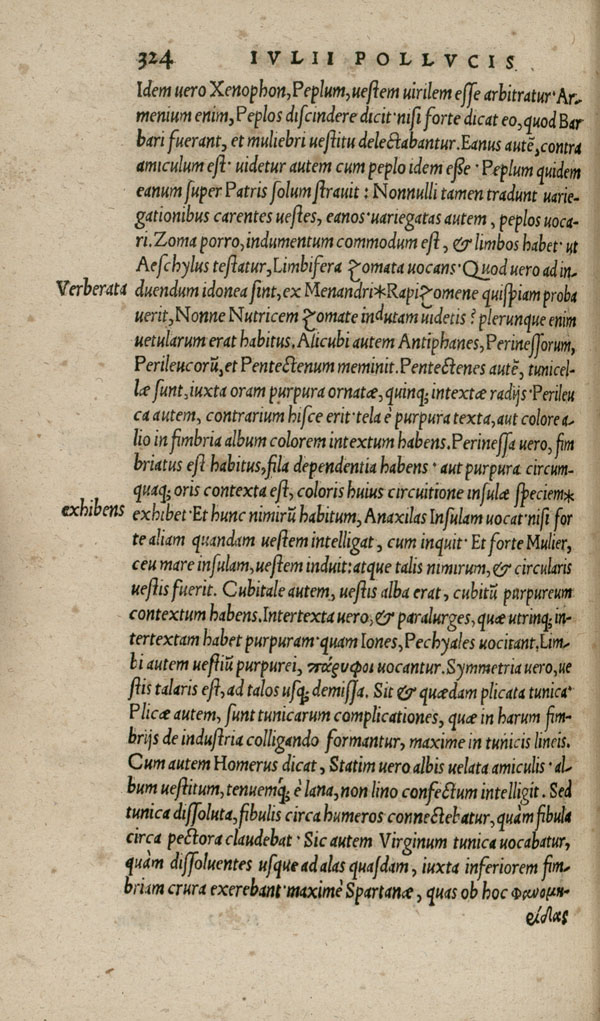 324 IVLII POLLVCIS
Idem uero Xenophon, Peplum, uestem uirilem esse arbitratur· Ar-
menium enim, Peplos discindere dicit· nisi forte dicat eo, quod Bar
bari fuerant, et muliebri uestitu delectabantur. Eanus autẽ, contra
amiculum est· uidetur autem cum peplo idem esse· Peplum quidem
eanum super Patris solum strauit: Nonnulli tamen tradunt uarie-
gationibus carentes uestes, eanos· uariegatas autem, peplos uoca-
ri. Zoma porro, indumentum commodum est, & limbos habet· ut
Aeschylus testatur, Limbifera zomata uocans· Quod uero ad in-
Verberata
duendum idonea sint, ex Menandri*Rapizomene quispiam proba
uerit, Nonne Nutricem zomate indutam uidetis? plerunque enim
uetularum erat habitus. Alicubi autem Antiphanes, Perinessorum,
Perileucorũ, et Pentectenum meminit. Pentectenes autẽ, tunicel-
læ sunt, iuxta oram purpura ornatæ, quinq; intextæ radijs· Perileu
ca autem, contrarium hisce erit· tela è purpura texta, aut colore a-
lio in fimbria album colorem intextum habens. Perinessa uero, fim
briatus est habitus, fila dependentia habens· aut purpura circum-
quaq; oris contexta est, coloris huius circuitione insulæ speciem*
exhibens
exhibet· Et hunc nimirũ habitum, Anaxilas Insulam uocat· nisi for
te aliam quandam uestem intelligat, cum inquit· Et forte Mulier,
ceu mare insulam, uestem induit: atque talis nimirum, & circularis
uestis fuerit. Cubitale autem, uestis alba erat, cubitũ purpureum
contextum habens. Intertexta uero, & paralurges, quæ utrinq; in-
tertextam habet purpuram· quam Iones, Pechyales uocitant. Lim-
bi autem uestiũ purpurei, πάρυφοι uocantur. Symmetria uero, ue
stis talaris est, ad talos usq; demissa. Sit & quædam plicata tunica·
Plicæ autem, sunt tunicarum complicationes, quæ in harum fim-
brijs de industria colligando formantur, maxime in tunicis lineis.
Cum autem Homerus dicat, Statim uero albis uelata amiculis· al-
bum uestitum, tenuemq́; è lana, non lino confectum intelligit. Sed
tunica dissoluta, fibulis circa humeros connectebatur, quàm fibula
circa pectora claudebat· Sic autem Virginum tunica uocabatur,
quàm dissoluentes usque ad alas quasdam, iuxta inferiorem fim-
briam crura exerebant· maximè Spartanæ, quas ob hoc φαινομη-
είδας